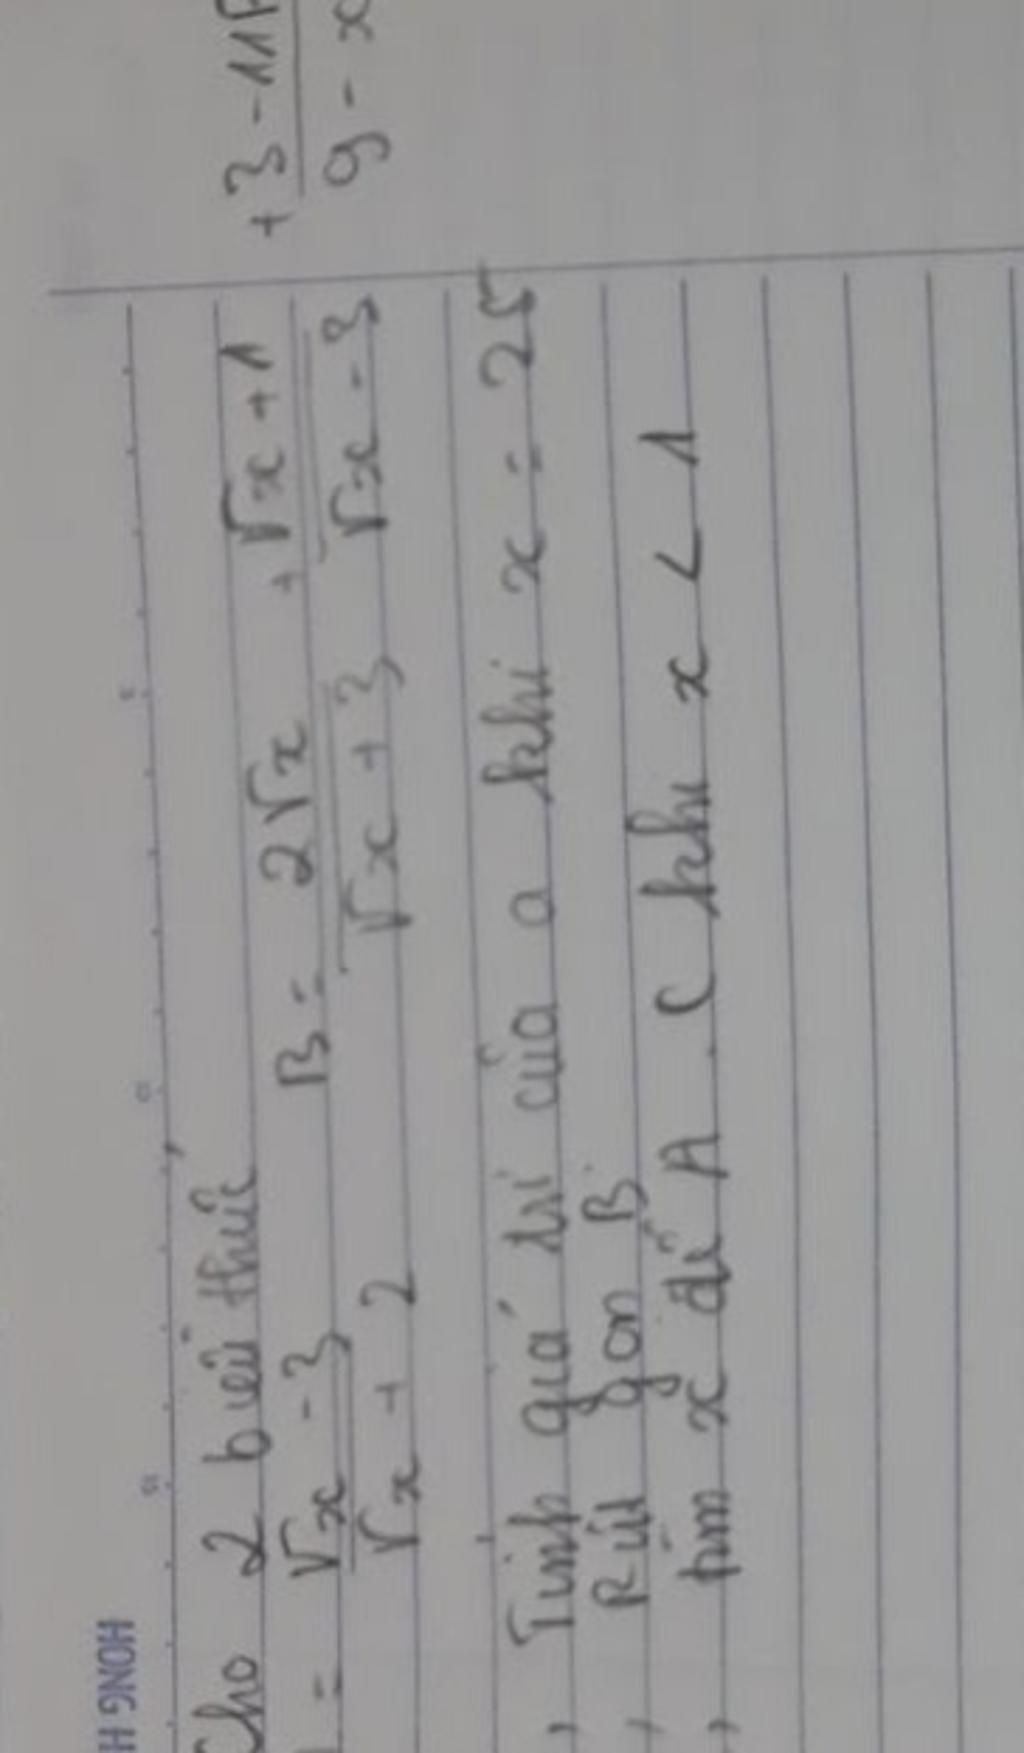 HONG H
Cho 2 biểu thức
= √x - 3 / √x + 2 B = 2√x / √x + 3 + √x + 1 / √x - 3 + 3 - 11 / 9 - x
, Tính giá trị của a khi x = 25
, Rút gọn B
, tìm x để A . C khi x < 1